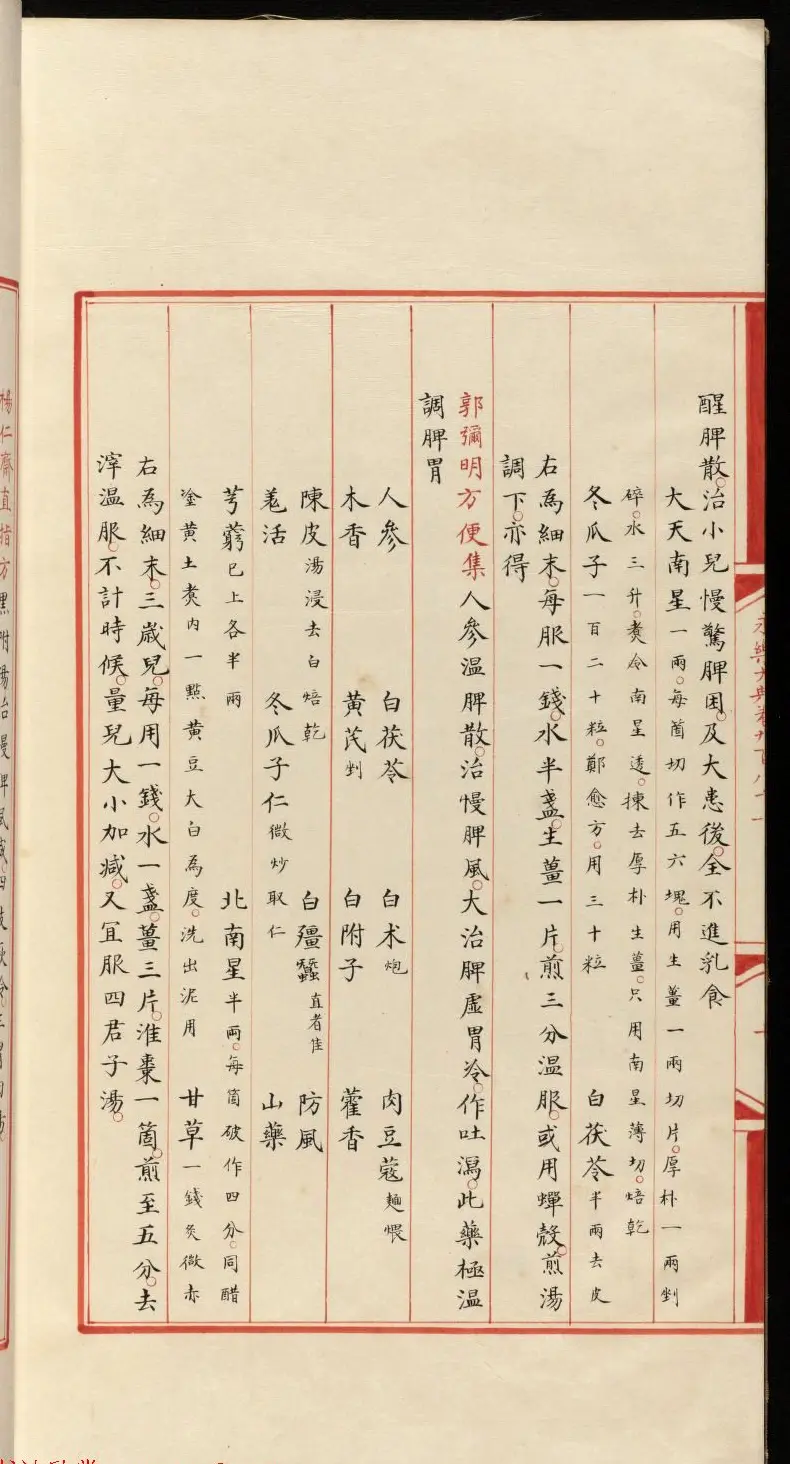 永樂大典卷九百八十一
醒脾散。治小兒慢驚脾困。及大患後。全不進乳食
大天南星一兩。每箇切作五六塊。用生薑一兩切片。厚朴一兩剉
碎。水三升。煑令南星透。揀去厚朴生薑。只用南星薄切。焙乾
冬瓜子一百二十粒。鄭愈方。用三十粒 白茯苓半兩去皮
右為細末。每服一錢。水半盞。生薑一片。煎三分温服。或用蟬殼。煎湯
調下。亦得
郭彌明方便集人參温脾散。治慢脾風。大治脾虚胃冷。作吐瀉。此藥極温
調脾胃
人參 白茯苓 白术炮 肉豆蔻麵煨
木香 黃芪剉 白附子 藿香
陳皮湯浸去白焙乾 白殭蠶直者佳 防風
羗活 冬瓜子仁微炒取仁 山藥
芎藭已上各半兩 北南星半兩。每箇破作四分。同醋
塗黃土煑内一點黃豆大白為度。洗出泥用 甘草一錢炙微赤
右為細末。三歲兒。每用一錢。水一盞。薑三片。淮棗一箇。煎至五分。去
滓温服。不計時候。量兒大小加减。又宜服四君子湯。
楊仁齋直指方黑附湯治慢脾風